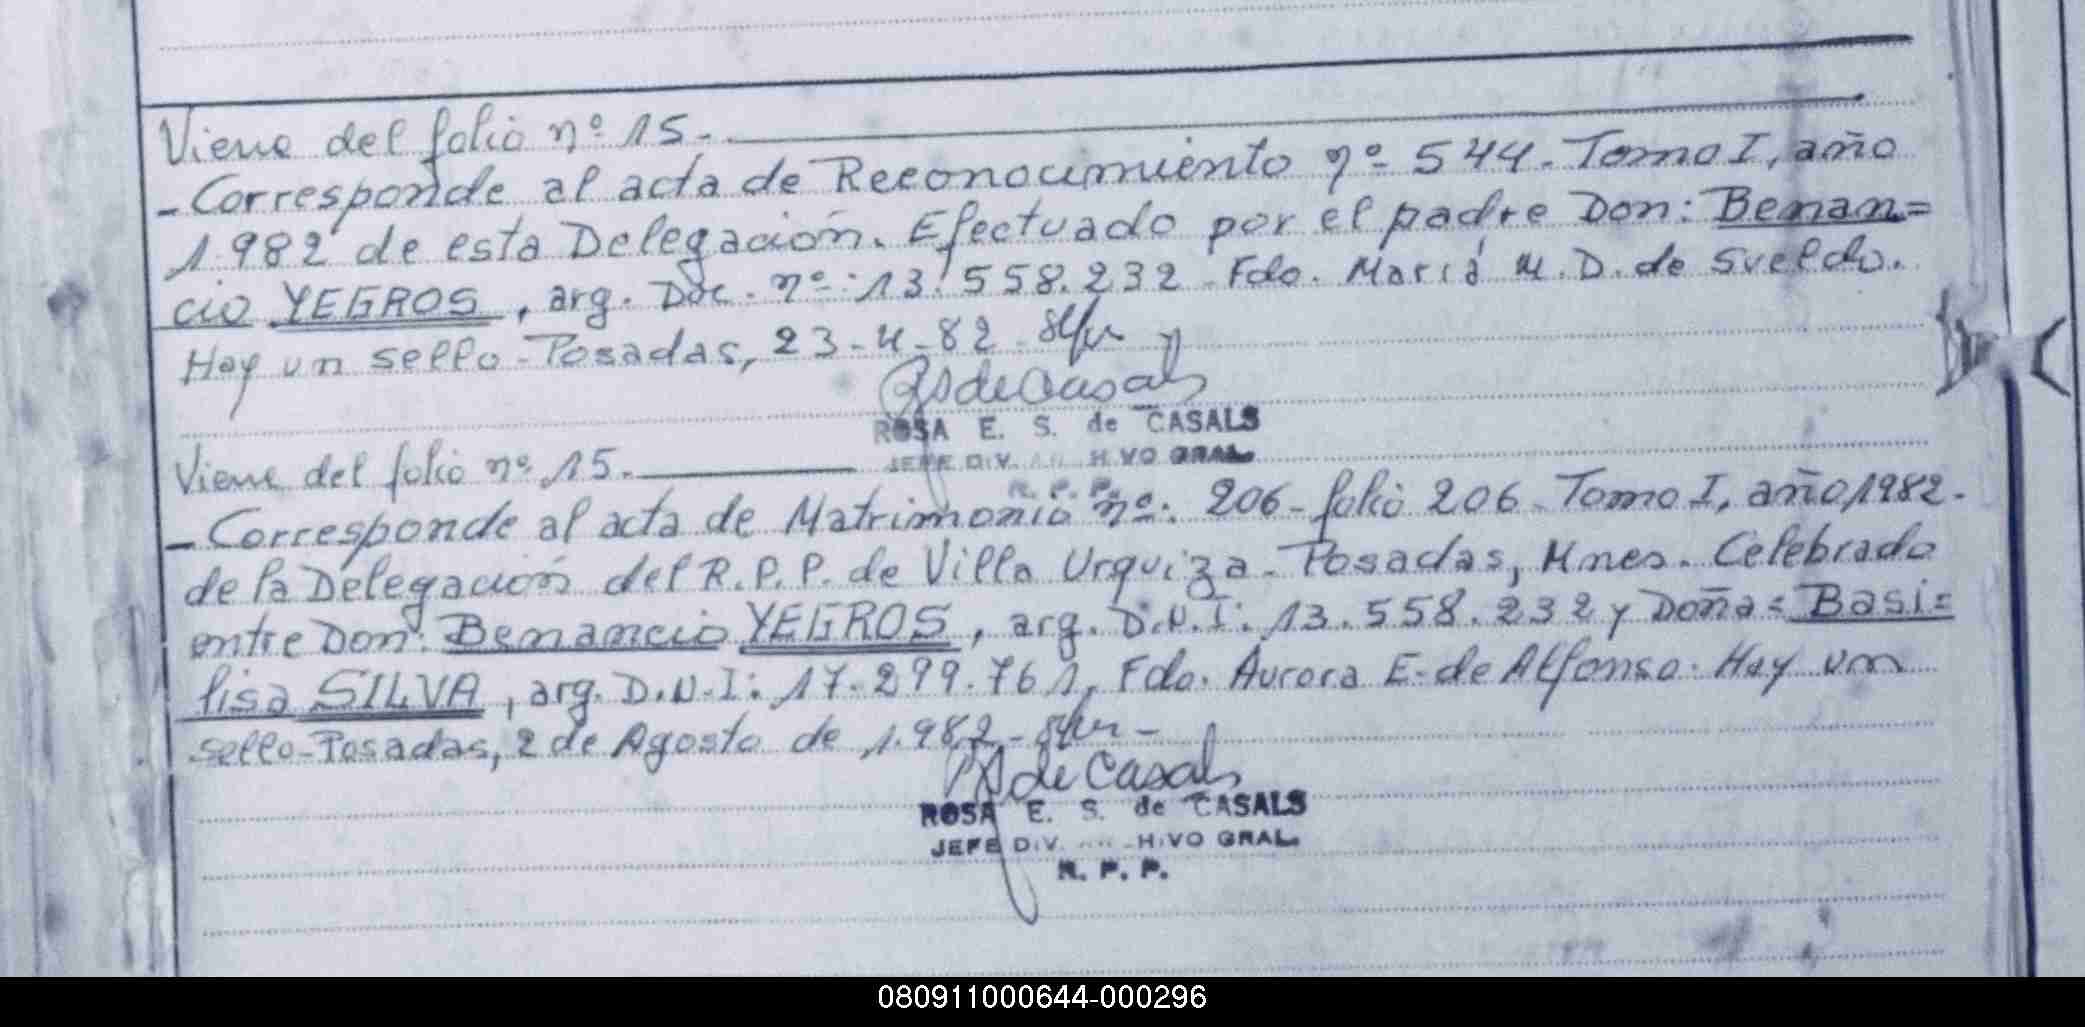 Viene del folio nº 15.
- Corresponde al acta de Reconocimiento nº 544. Tomo I, año
1.982 de esta Delegación. Efectuado por el padre Don: Benan=
cio YEGROS, arg. Doc. nº: 13.558.232 - Fdo. María M. D. de Sveldo.
Hay un sello - Posadas, 23-4-82
RS de Casals
ROSA E. S. de CASALS
JEFE DIV. HIVO GRAL.
R. P. P.
Viene del folio nº 15.
- Corresponde al acta de Matrimonio nº: 206 - folio 206 - Tomo I, año 1982.
de la Delegación del R.P.P. de Villa Urquiza - Posadas, Mnes. Celebrado
entre Don: Benancio YEGROS, arg. D.N.I: 13.558.232 y Doña: Basi=
lisa SILVA, arg. D.N.I: 17.299.761, Fdo. Aurora E. de Alfonso. Hay un
sello - Posadas, 2 de Agosto de 1.982 -
de Casals
ROSA E. S. de CASALS
JEFE DIV. HIVO GRAL.
R. P. P.
080911000644-000296